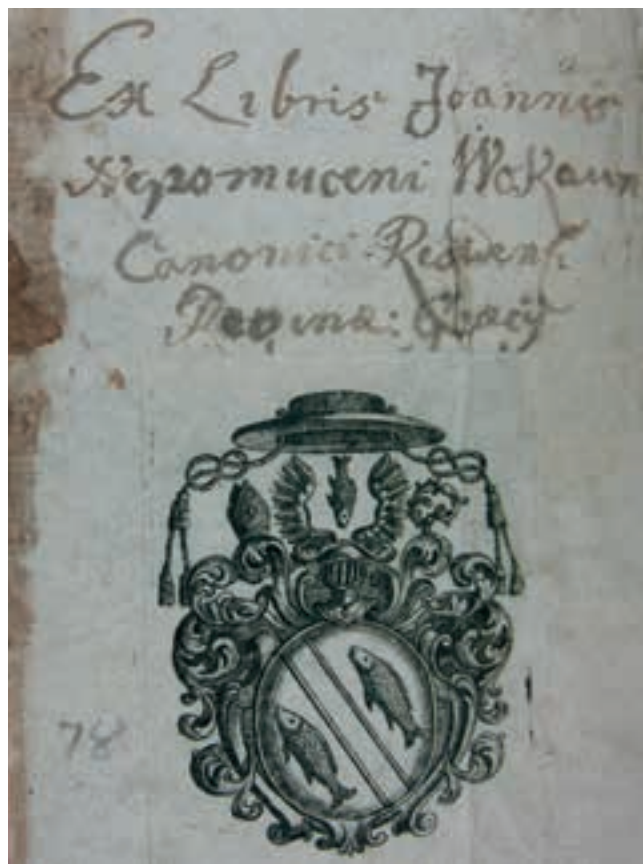 Ex Libris Joannis
Nepomuceni Wokaun
Canonici Resident.
Regina:
78